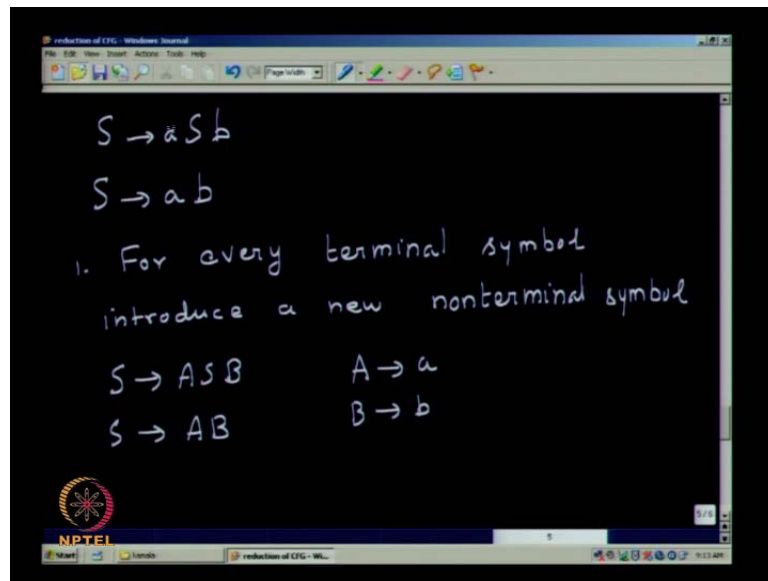 reduction of CFG - Windows Journal
File Edit View Insert Actions Tools Help
Page Width
S → a S b
S → a b
1. For every terminal symbol
introduce a new nonterminal symbol
S → A S B A → a
S → A B B → b
NPTEL
5/6
5
Start kamala reduction of CFG - Wi... 9:13 AM